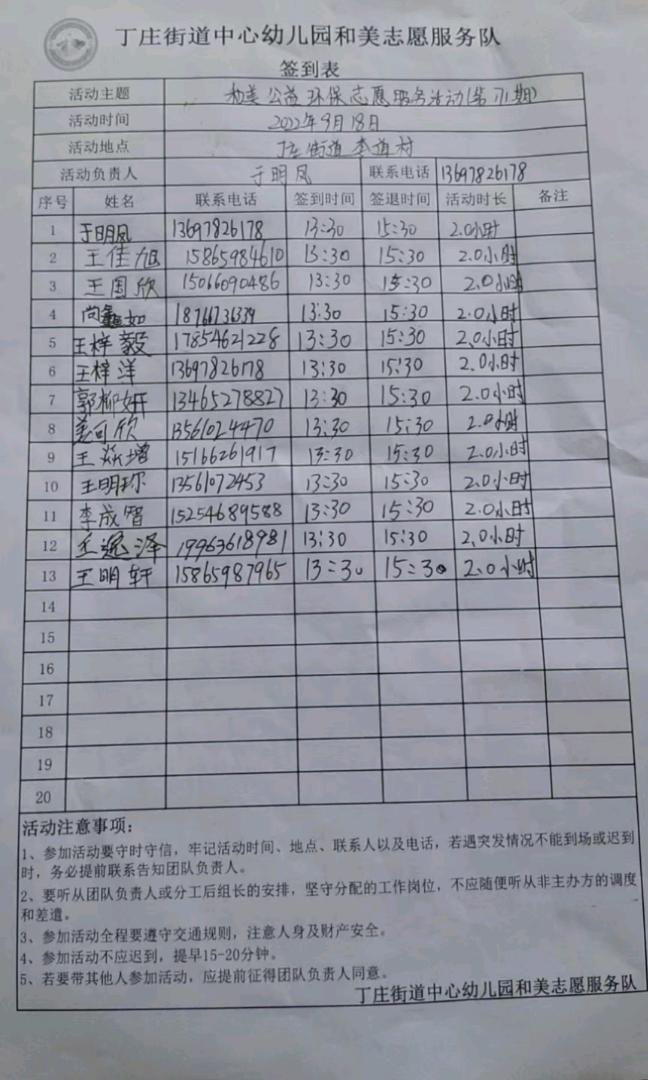 丁庄街道中心幼儿园和美志愿服务队
签到表
活动主题 和美公益环保志愿服务活动(第71期)
活动时间 2022年9月18日
活动地点 丁庄街道李道村
活动负责人 于明凤 联系电话 13697826178
序号 姓名 联系电话 签到时间 签退时间 活动时长 备注
1 于明凤 13697826178 13:30 15:30 2.0小时
2 王佳旭 15865984610 13:30 15:30 2.0小时
3 王国欣 15066090486 13:30 15:30 2.0小时
4 13:30 15:30 2.0小时
5 王梓毅 17854621228 13:30 15:30 2.0小时
6 王梓洋 13697826178 13:30 15:30 2.0小时
7 郭柳妍 13465278827 13:30 15:30 2.0小时
8 姜可欣 13561024470 13:30 15:30 2.0小时
9 王 15166261917 13:30 15:30 2.0小时
10 王明珎 13561072453 13:30 15:30 2.0小时
11 李成智 15254689588 13:30 15:30 2.0小时
12 王逸泽 19963618981 13:30 15:30 2.0小时
13 王明轩 15865987965 13:30 15:30 2.0小时
14
15
16
17
18
19
20
活动注意事项:
1、参加活动要守时守信，牢记活动时间、地点、联系人以及电话，若遇突发情况不能到场或迟到
时，务必提前联系告知团队负责人。
2、要听从团队负责人或分工后组长的安排，坚守分配的工作岗位，不应随便听从非主办方的调度
和差遣。
3、参加活动全程要遵守交通规则，注意人身及财产安全。
4、参加活动不应迟到，提早15-20分钟。
5、若要带其他人参加活动，应提前征得团队负责人同意。
丁庄街道中心幼儿园和美志愿服务队